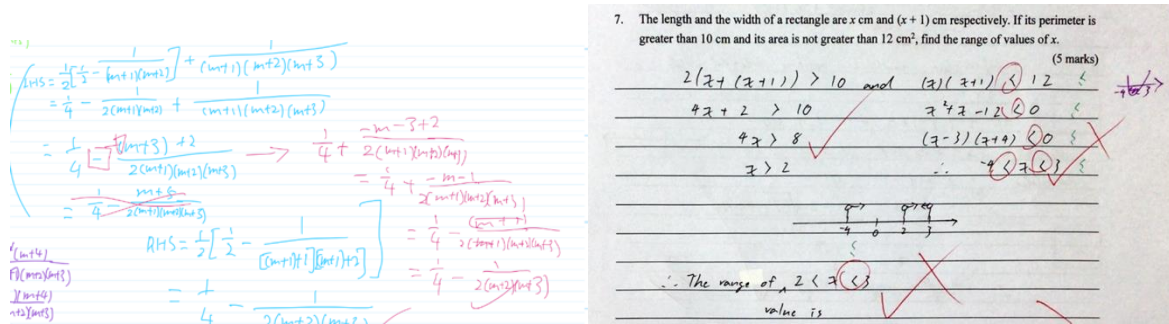 LHS = 1/2[1/2 - 1/((m+1)(m+2))] + 1/((m+1)(m+2)(m+3))
= 1/4 - 1/(2(m+1)(m+2)) + 1/((m+1)(m+2)(m+3))
= 1/4 - ((m+3)+2)/(2(m+1)(m+2)(m+3))
→ 1/4 + (-m-3+2)/(2(m+1)(m+2)(m+3))
= 1/4 + (-m-1)/(2(m+1)(m+2)(m+3))
= 1/4 - (m+1)/(2(m+1)(m+2)(m+3))
= 1/4 - 1/(2(m+2)(m+3))
= 1/4 - (m+5)/(2(m+1)(m+2)(m+3))
RHS = 1/2[1/2 - 1/([(m+1)+1][(m+1)+2])]
= 1/4 - 1/(2(m+2)(m+3))
(m+4)
(m+2)(m+3)
(m+4)
7. The length and the width of a rectangle are x cm and (x + 1) cm respectively. If its perimeter is
greater than 10 cm and its area is not greater than 12 cm², find the range of values of x.
(5 marks)
2(x+(x+1)) > 10 and (x)(x+1) < 12 ≤
4x + 2 > 10 x²+x-12 < 0 ≤
4x > 8 (x-3)(x+4) < 0 ≤
x > 2 ∴ -4 < x < 3 ≤
-4 3
-4 0 2 3
≤
∴ The range of ‸ 2 < x < 3
value is